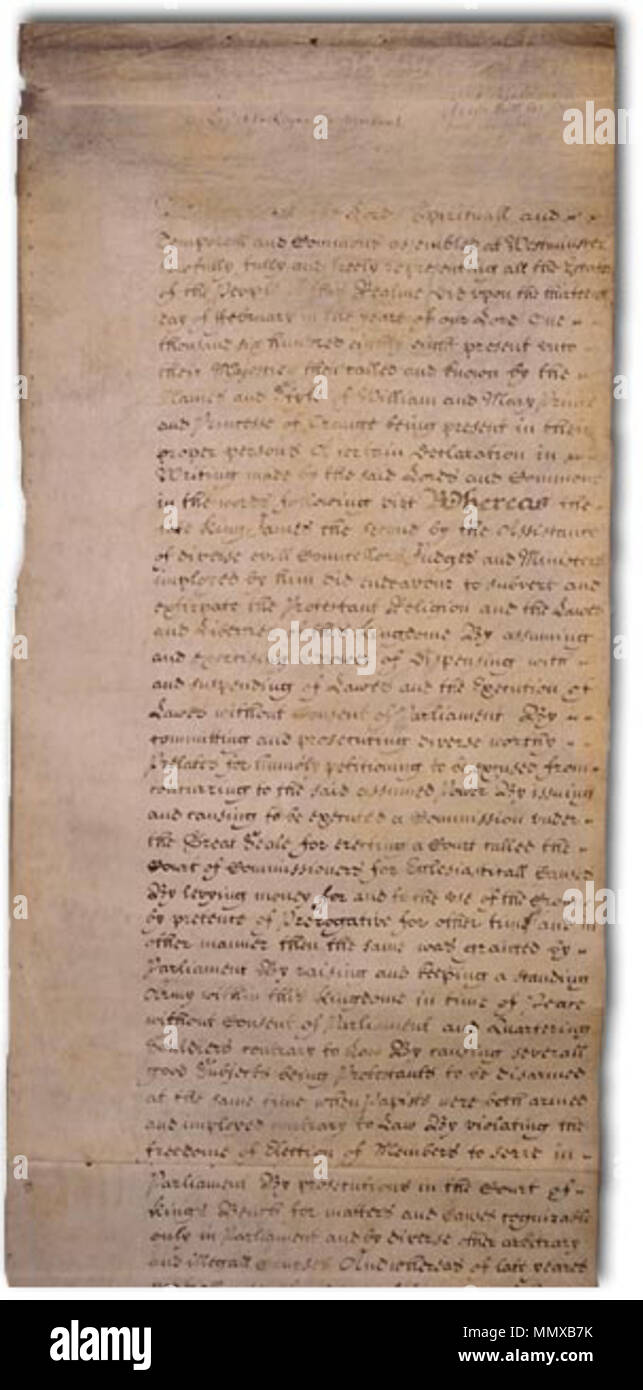 Lords Spirituall and
Temporall and Commons assembled at Westminster
lawfully fully and freely representing all the Estates
of the People of this Realme did upon the thirteenth
day of February in the yeare of our Lord One
thousand six hundred eighty eight present unto
their Majesties then called and known by the
Names and Stile of William and Mary Prince
and Princesse of Orange being present in their
proper persons A certain Declaration in
Writing made by the said Lords and Commons
in the words following vizt Whereas the
late King James the second by the Assistance
of diverse evill Councellors Judges and Ministers
imployed by him did endeavour to subvert and
extirpate the Protestant Religion and the Lawes
and Liberties of this Kingdome By assuming
and exercising a Power of Dispensing with
and suspending of Lawes and the Execution of
Lawes without Consent of Parliament By
committing and prosecuting diverse worthy
Prelates for humbly petitioning to be excused from
concurring to the said assumed Power By issuing
and causing to be executed a Commission under
the Great Seale for erecting a Court called the
Court of Commissioners for Ecclesiasticall Causes
By levying money for and to the use of the Crowne
by pretence of Prerogative for other time and in
other manner then the same was granted by
Parliament By raising and keeping a standing
Army within this Kingdome in time of Peace
without Consent of Parliament and Quartering
Souldiers contrary to Law By causing severall
good Subjects being Protestants to be disarmed
at the same time when Papists were both armed
and imployed contrary to Law By violating the
freedome of Election of Members to serve in
Parliament By prosecutions in the Court of
Kings Bench for matters and Causes cognizable
only in Parliament and by diverse other arbitrary
and illegall Courses And whereas of late yeares
alamy
Image ID: MMXB7K
www.alamy.com